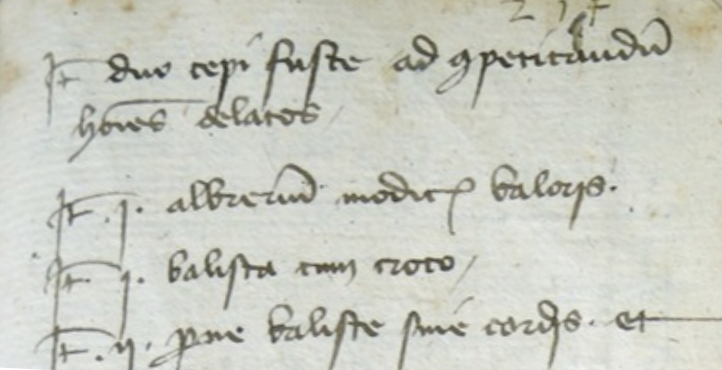 It duo cepi fuste ad ꝯpeticandũ
hoıẽs delatos /
It .j. albreriũ modicj valoris.
It j. balista cum croco /
It .ij. parue baliste sine cordis. et